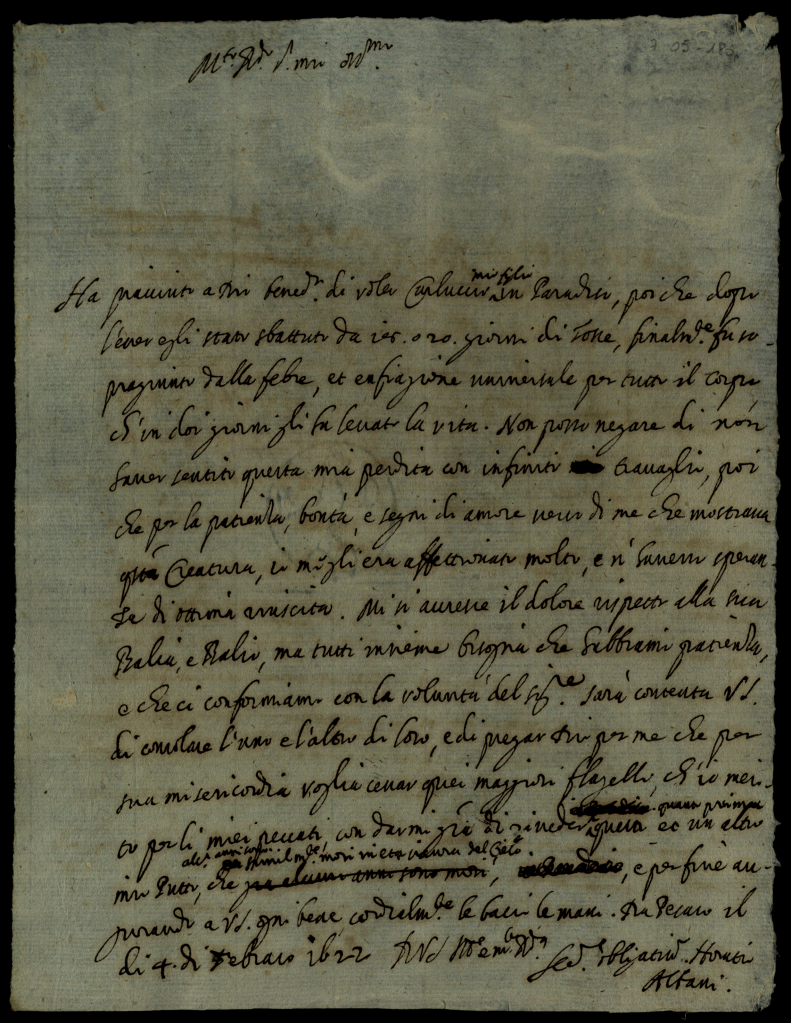 7-05-183
M.to R.do S.r mio oss.mo
Ha piaciuto a Dio bened.o di voler Carluccio mio figlio in Paradiso, poi che dopo
l'haver egli stato sbattuto da 18. o 20. giorni di Tosse, finalm.te fu so-
pragiunto dalla febre, et enfiagione universale per tutto il corpo
ch'in doi giorni gli ha levato la vita. Non posso negare di non
haver sentito questa mia perdita con infiniti travagli, poi
che per la patienza, bontà, e segni di amore verso di me che mostrava
q.sta Creatura, io me gli era affettionato molto, e n'havevo speran-
za di ottima riuscita. Mi si accresce il dolore rispetto alla sua
Balia, e Balio, ma tutti insieme bisogna che habbiamo patienza,
e che ci conformiamo con la volontà del Sig.re Sarà contenta V.S.
di consolare l'uno e l'altro di loro, e di pregar Dio per me che per
sua misericordia voglia cessar quei maggiori flagelli, ch'io meri-
to per li miei peccati, con darmi gra di riveder questo et un altro
mio Putto, che simil.mte morì in Cielo, e per fine au-
gurando a V.S. ogni bene cordialm.te le bacio le mani. Da Pesaro il
di 4. di Febraio 1622 D V.S. M.to
Ser.re obligatiss.o Horatio
Albani.